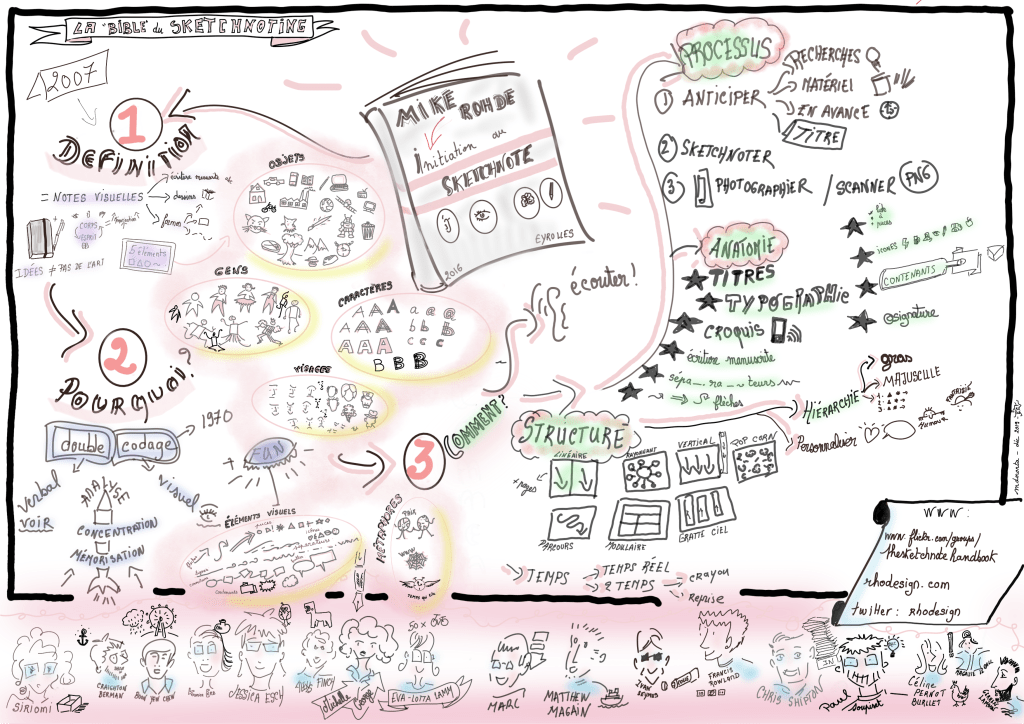 LA "BIBLE" du SKETCHNOTING
2007
1
DEFINITION
- NOTES VISUELLES
écriture manuscrite
dessins
formes
CORPS
ESPRIT
5 éléments
IDÉES ≠ PAS DE L'ART
OBJETS
GENS
CARACTÈRES
A A A a a a
A A A b b B
A A A c c c
B B B
VISAGES
MIKE ROHDE
Initiation au
SKETCHNOTE
EYROLLES
2016
2
POURQUOI ?
double codage
1970
verbal
voir
visuel
ANALYSE
CONCENTRATION
MÉMORISATION
+ FUN
ÉLÉMENTS VISUELS
MÉTAPHORES
PAIX
WWW
3
COMMENT ?
écouter !
PROCESSUS
1 ANTICIPER
RECHERCHES
MATÉRIEL
EN AVANCE
TITRE
2 SKETCHNOTER
3 PHOTOGRAPHIER / SCANNER PNG
ANATOMIE
TITRES
TYPOGRAPHIE
CROQUIS
écriture manuscrite
sépa_ra_teurs
flèches
liste à puces
icones
CONTENANTS
@signature
STRUCTURE
LINÉAIRE
RAYONNANT
VERTICAL
POP CORN
+ pages
PARCOURS
MODULAIRE
GRATTE CIEL
HIÉRARCHIE
gras
MAJUSCULE
Personnaliser
Humour
FANTAISIE
TEMPS
TEMPS RÉEL
2 TEMPS
crayon
reprise
WWW :
www.flickr.com/groups/
thesketchnotehandbook
rhodesign.com
twitter : rhodesign
siriomi
CRAIGHTON BERMAN
JESSICA ESCH
50 x
EVA-LOTTA LAMM
MARC
MATTHEW MAGAIN
FRANCIS ROWLAND
CHRIS SHIPTON
IN
Paul Soupiset
Céline PERNOT BURLET